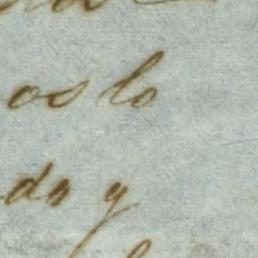 os lo
do y